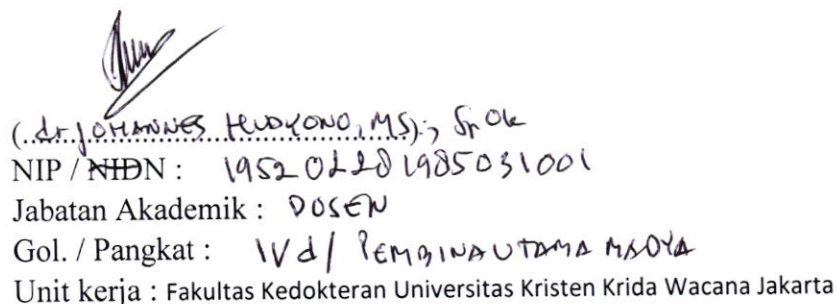 (dr. JOHANNES HUDYONO, MS), SpOk
NIP / NIDN : 195202281985031001
Jabatan Akademik : DOSEN
Gol. / Pangkat : IVd / PEMBINA UTAMA MADYA
Unit kerja : Fakultas Kedokteran Universitas Kristen Krida Wacana Jakarta